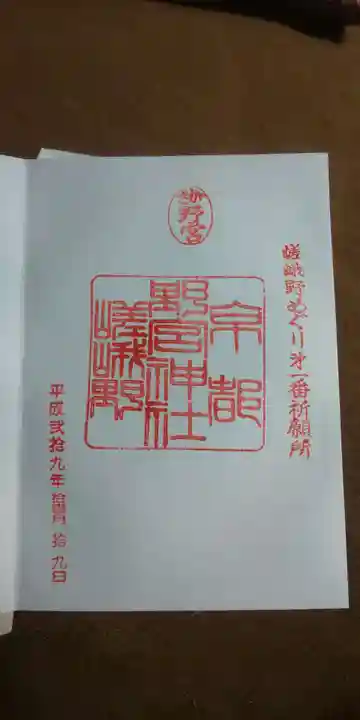 嵯峨野めぐり第一番祈願所
野宮
京都
野宮神社
嵯峨野
平成弐拾九年拾月拾九日